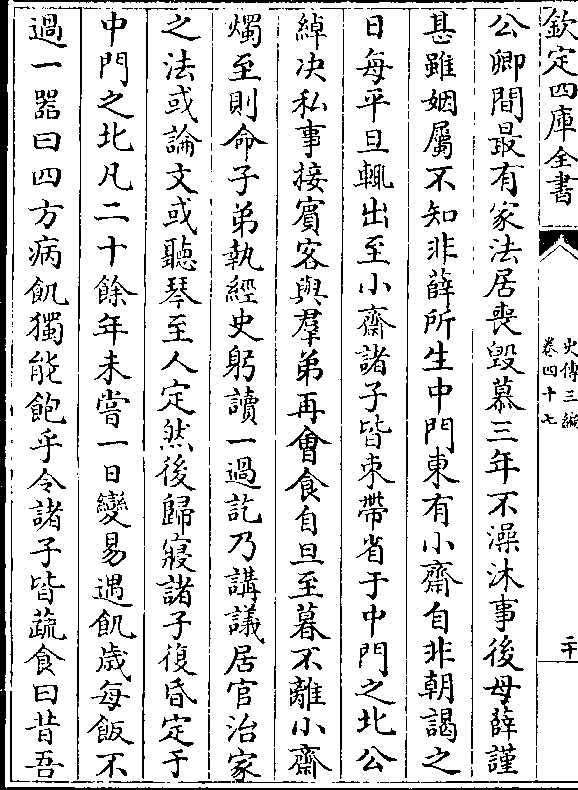 欽定四庫全書
史傳三編
卷四十七
二十
公卿間最有家法居喪毀慕三年不澡沐事後母薛謹
甚雖姻屬不知非薛所生中門東有小齋自非朝謁之
日每平旦輒出至小齋諸子皆束帶省于中門之北公
綽决私事接賓客與羣弟再㑹食自旦至暮不離小齋
燭至則命子弟執經史躬讀一過訖乃講議居官治家
之法或論文或聽琴至人定然後歸寢諸子復昏定于
中門之北凡二十餘年未嘗一日變易遇飢歲每飯不
過一器曰四方病飢獨能飽乎令諸子皆蔬食曰昔吾